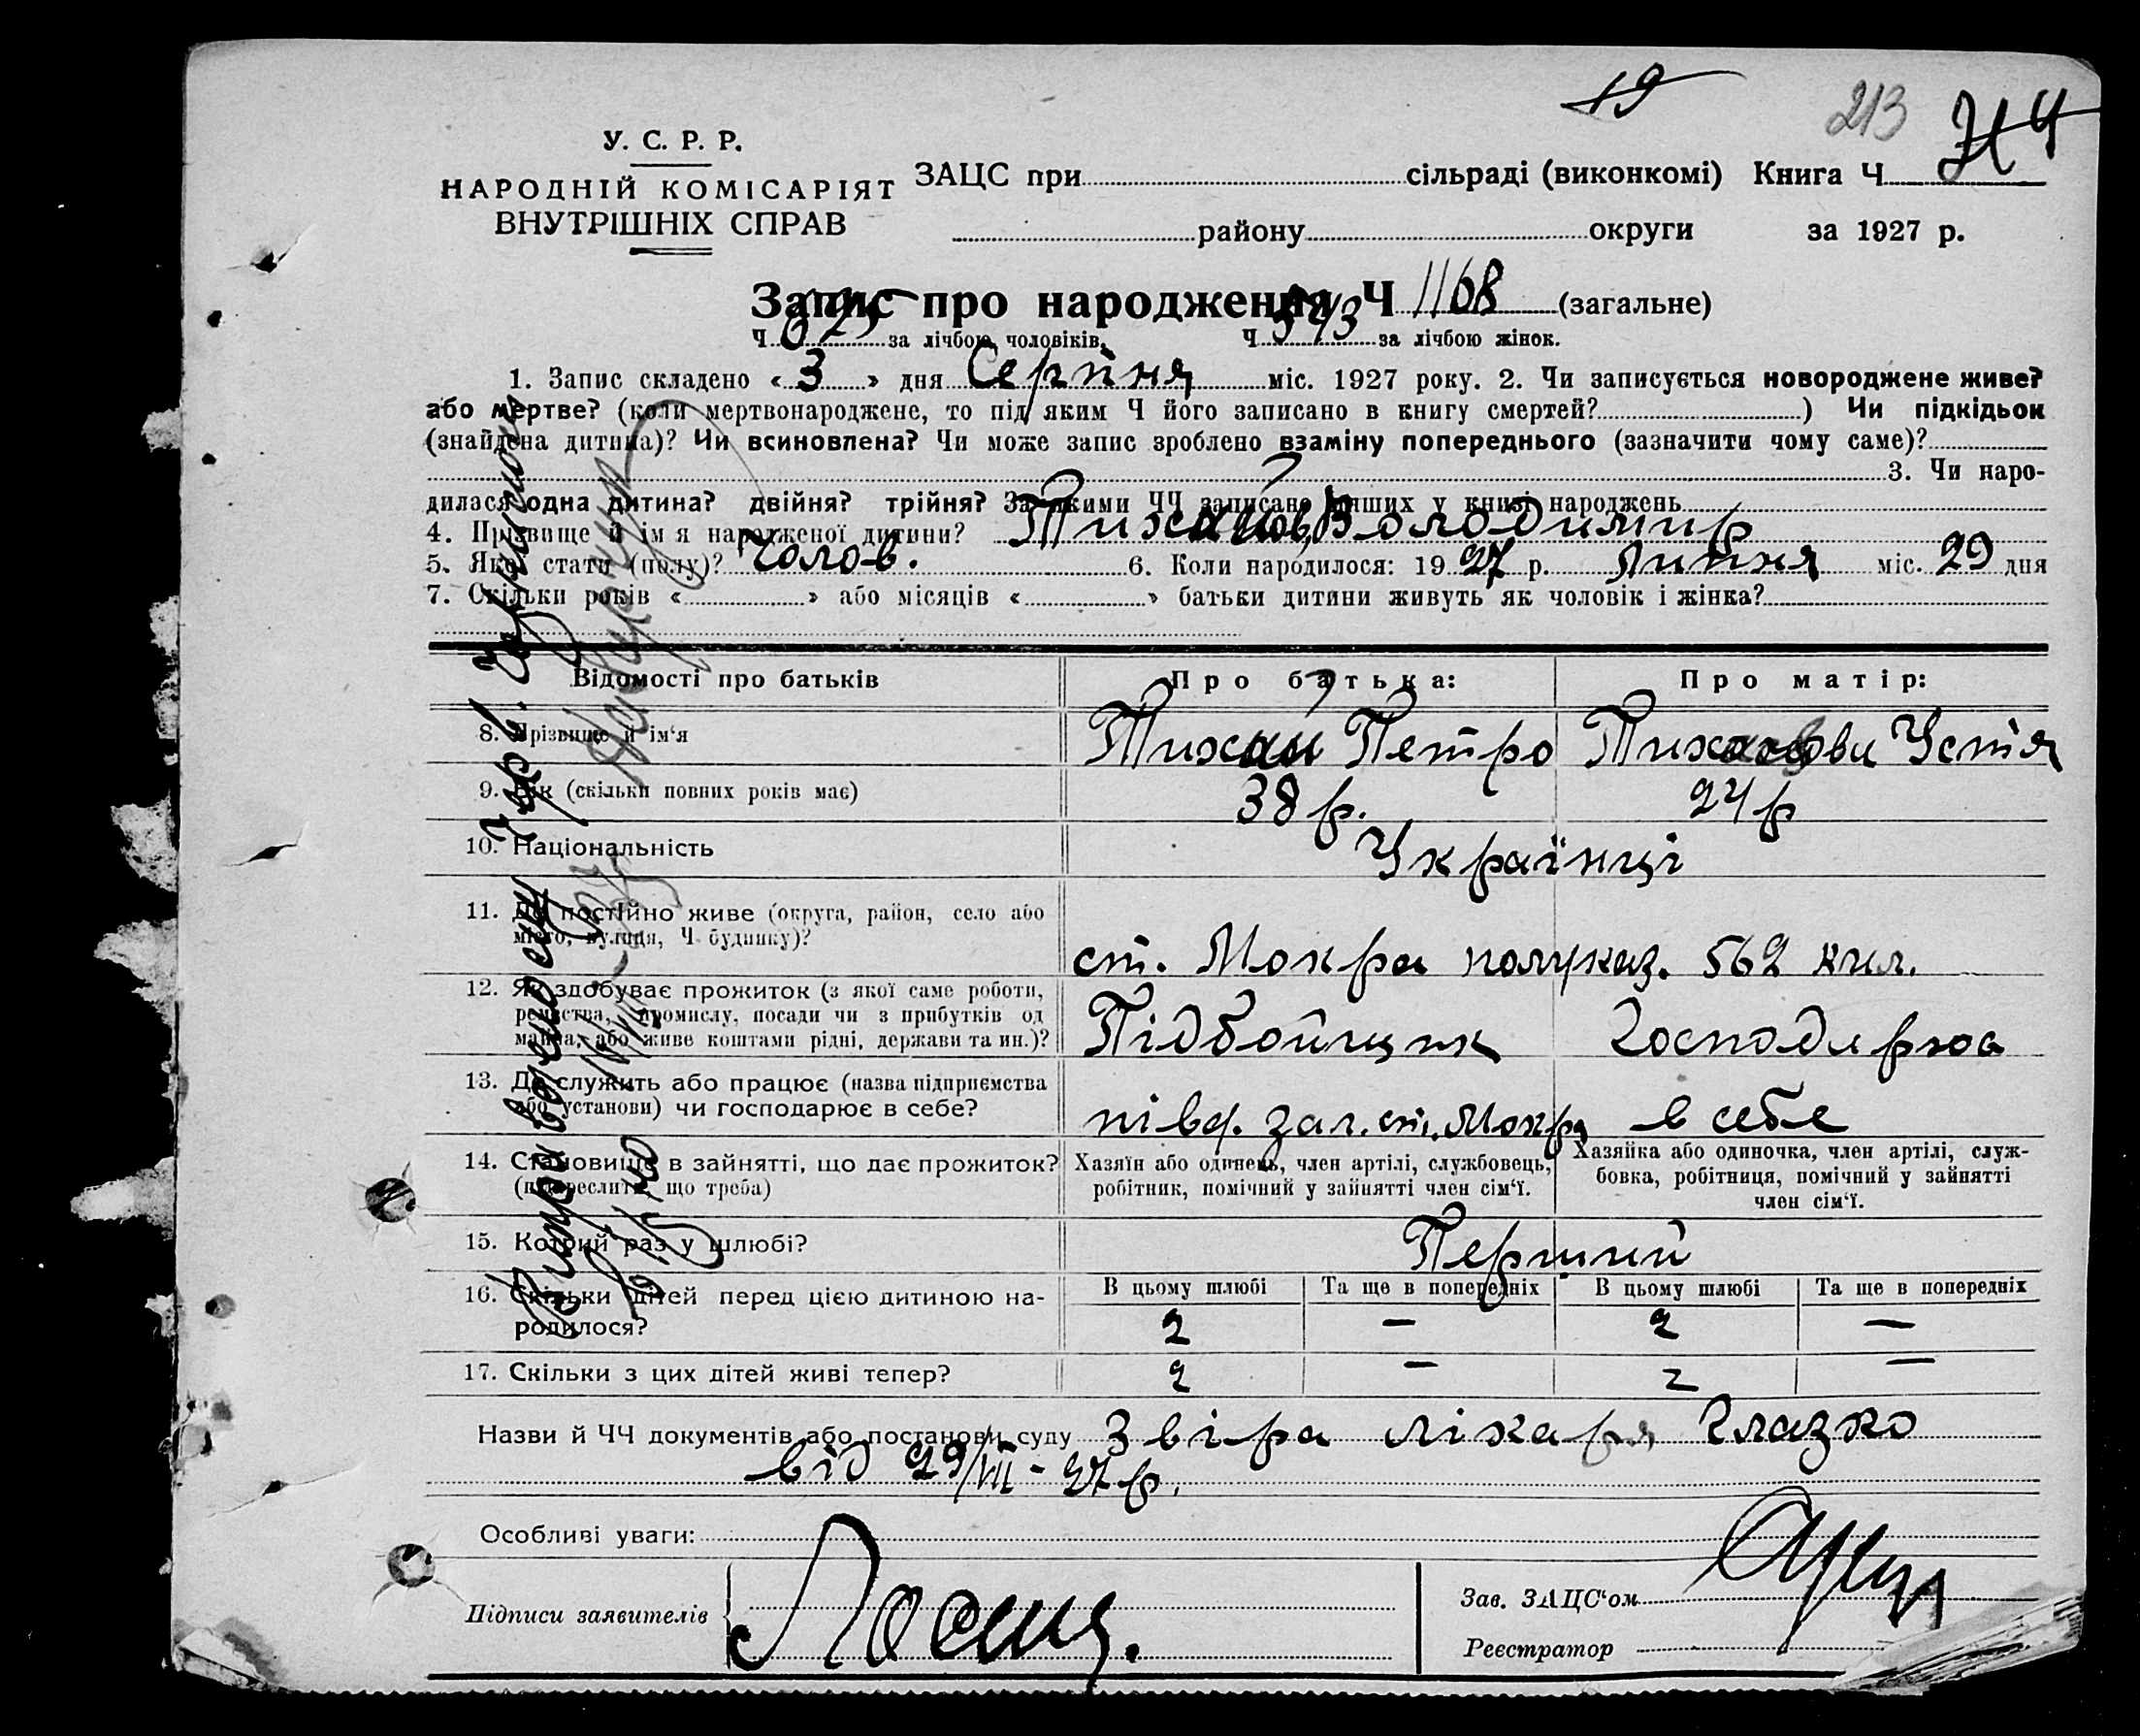 19
213
У. С. Р. Р.
НАРОДНІЙ КОМІСАРІЯТ
ВНУТРІШНІХ СПРАВ
ЗАЦС при сільраді (виконкомі) Книга Ч
району округи за 1927 р.
Запис про народження Ч 1168 (загальне)
Ч 625 за лічбою чоловіків. Ч 543 за лічбою жінок.
1. Запис складено « 3 » дня Серпня міс. 1927 року. 2. Чи записується новороджене живе?
або мертве? (коли мертвонароджене, то під яким Ч його записано в книгу смертей? ) Чи підкідьок
(знайдена дитина)? Чи всиновлена? Чи може запис зроблено взаміну попереднього (зазначити чому саме)?
3. Чи наро-
дилася одна дитина? двійня? трійня? За якими ЧЧ записано інших у книзі народжень
4. Прізвище й ім'я народженої дитини? Володимир
5. Якої статі (полу)? Чолов. 6. Коли народилося: 19 27 р. Липня міс. 29 дня
7. Скільки років « » або місяців « » батьки дитини живуть як чоловік і жінка?
Відомості про батьків Про батька: Про матір:
8. Прізвище й ім'я Петро Устя
9. Вік (скільки повних років має) 38 р. 24 р
10. Національність Українці
11. Де постійно живе (округа, район, село або
місто, вулиця, Ч будинку)? ст. Мокра полуказ. 562 кил.
12. Як здобуває прожиток (з якої саме роботи,
ремества, промислу, посади чи з прибутків од
майна, або живе коштами рідні, держави та ин.)? Підбойщик Господарює
13. Де служить або працює (назва підприємства
або установи) чи господарює в себе? півд. зал. ст. Мокра в себе
14. Становище в зайнятті, що дає прожиток?
(підкреслити, що треба)
Хазяїн або одинець, член артілі, службовець,
робітник, помічний у зайнятті член сім'ї.
Хазяйка або одиночка, член артілі, служ-
бовка, робітниця, помічний у зайнятті
член сім'ї.
15. Котрий раз у шлюбі? Перший
16. Скільки дітей перед цією дитиною на-
родилося?
В цьому шлюбі Та ще в попередніх В цьому шлюбі Та ще в попередніх
2 — 2 —
17. Скільки з цих дітей живі тепер? 2 — 2 —
Назви й ЧЧ документів або постанови суду Звіра лікаря Глазко
від 29/VII - 27 р.
Особливі уваги:
Підписи заявителів
Зав. ЗАЦС'ом
Реєстратор